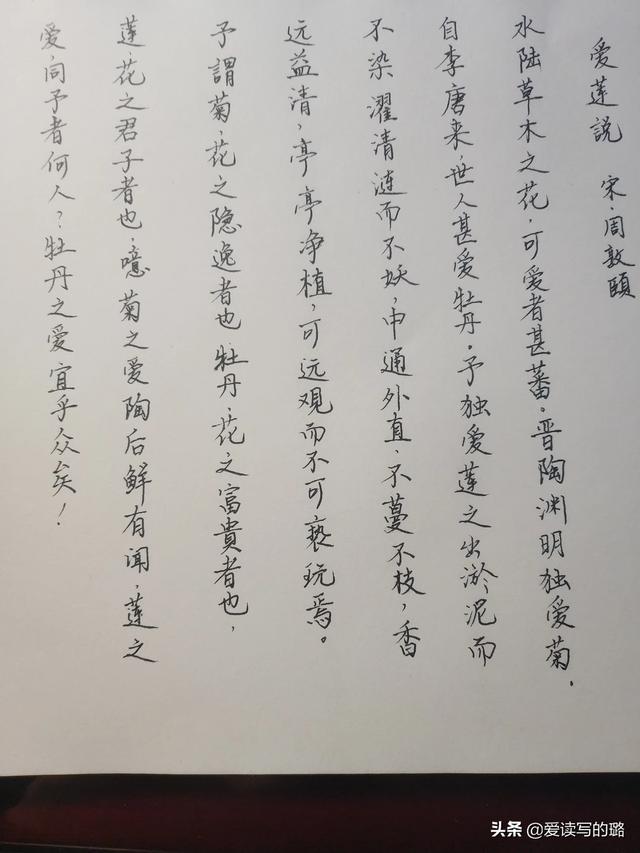 爱莲説 宋·周敦頤
水陆草木之花，可爱者甚蕃。晋陶渊明独爱菊.
自李唐来,世人甚爱牡丹.予独爱莲之出淤泥而
不染濯清涟而不妖,中通外直、不蔓不枝，香
远益清,亭亭净植,可远观而不可亵玩焉。
予謂菊,花之隐逸者也.牡丹,花之富貴者也,
莲花之君子者也.噫菊之爱陶后鲜有闻,莲之
爱,同予者何人？牡丹之爱宜乎众矣！
头条 @爱读写的璐